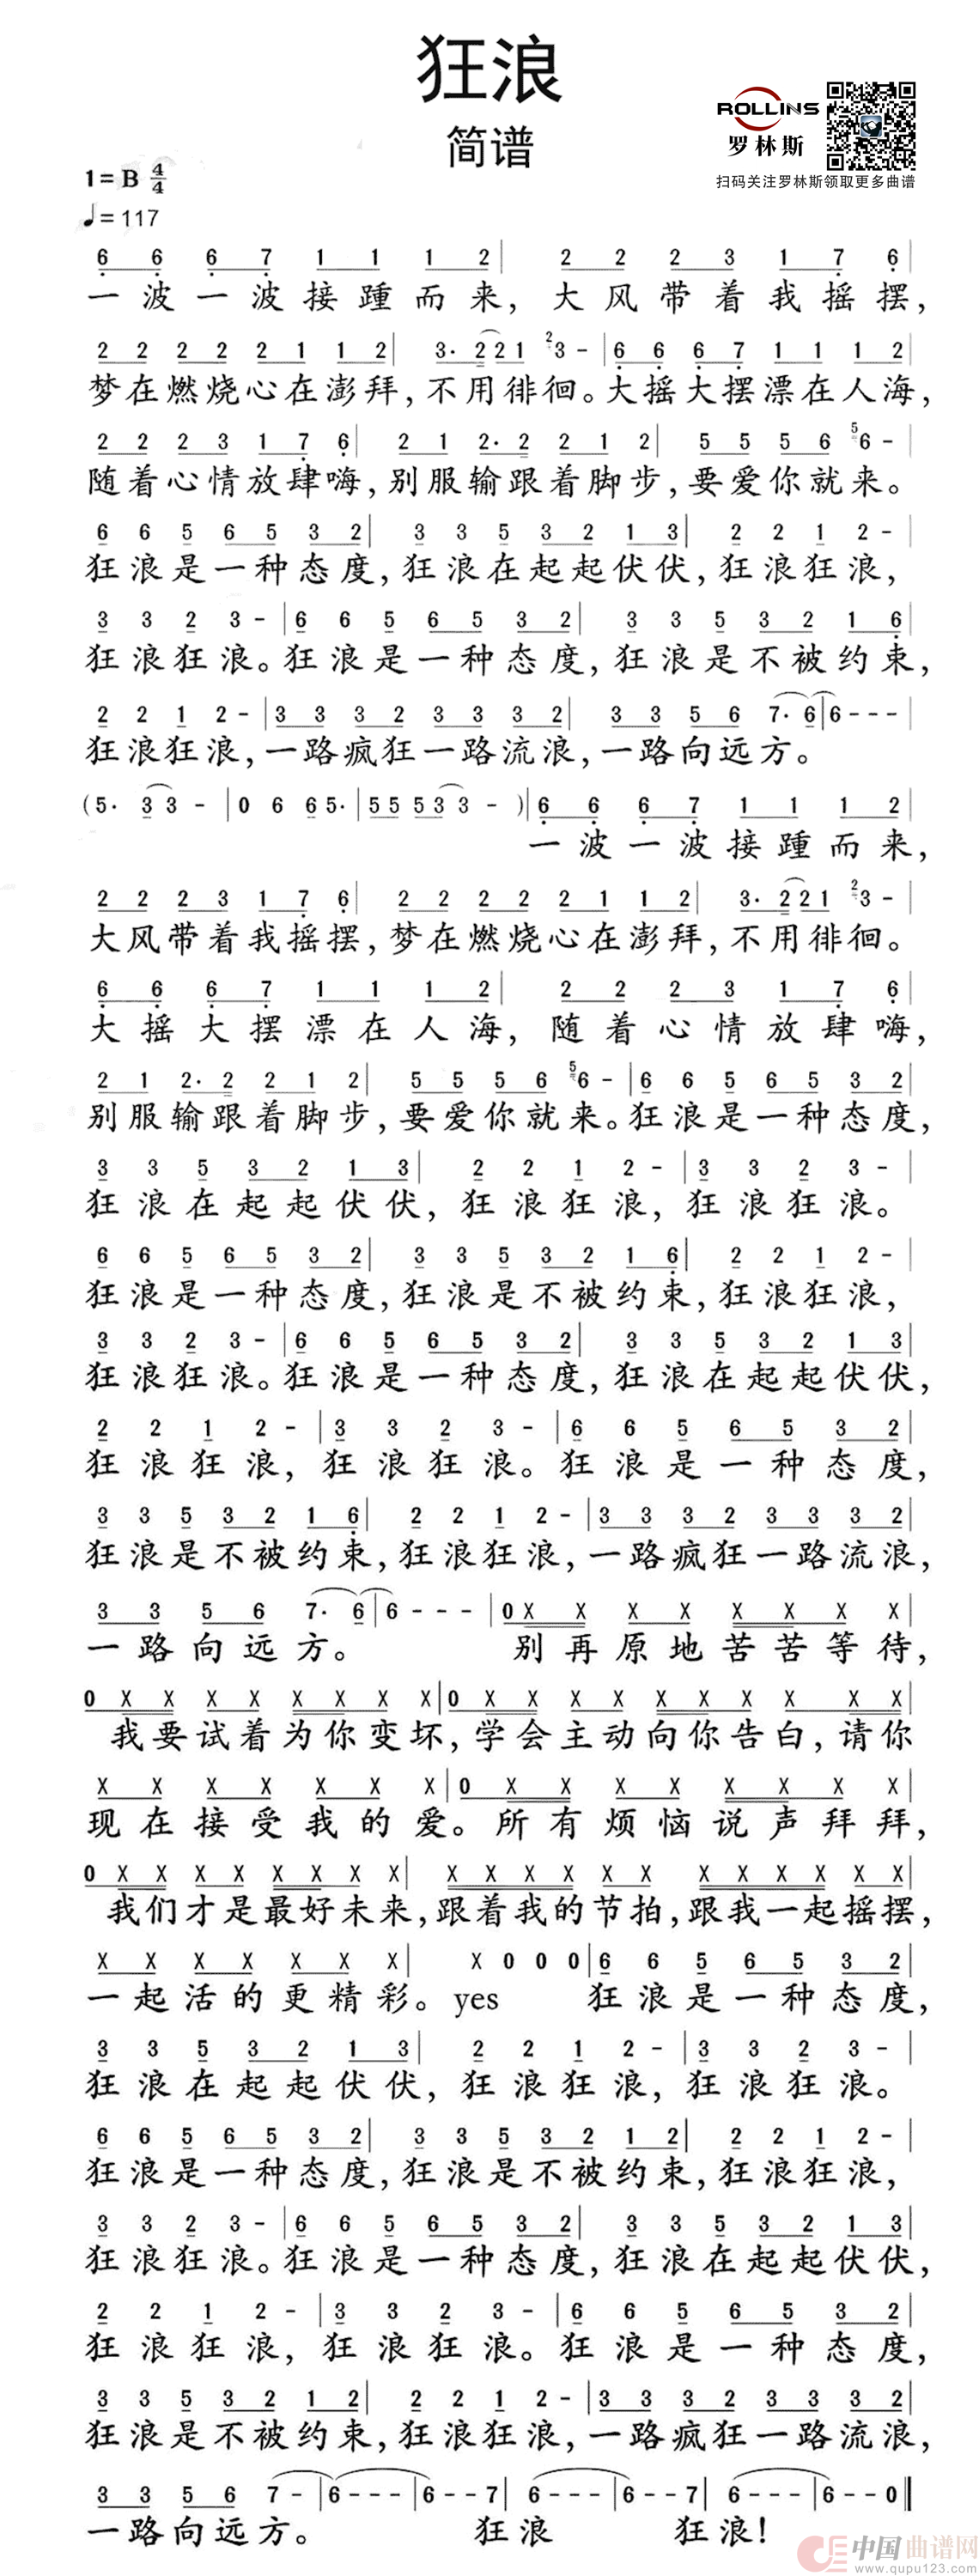 狂浪
简谱
ROLLINS
罗林斯
扫码关注罗林斯领取更多曲谱
1=B 4/4
♩=117
6 6 6 7 1 1 1 2 | 2 2 2 3 1 7 6 |
一波一波接踵而来,大风带着我摇摆,
2 2 2 2 2 1 1 2 | 3· 2 2 1 2 3 - | 6 6 6 7 1 1 1 2 |
梦在燃烧心在澎拜,不用徘徊。大摇大摆漂在人海,
2 2 2 3 1 7 6 | 2 1 2· 2 2 1 2 | 5 5 5 6 5 6 - |
随着心情放肆嗨,别服输跟着脚步,要爱你就来。
6 6 5 6 5 3 2 | 3 3 5 3 2 1 3 | 2 2 1 2 - |
狂浪是一种态度,狂浪在起起伏伏,狂浪狂浪,
3 3 2 3 - | 6 6 5 6 5 3 2 | 3 3 5 3 2 1 6 |
狂浪狂浪。狂浪是一种态度,狂浪是不被约束,
2 2 1 2 - | 3 3 3 2 3 3 3 2 | 3 3 5 6 7· 6 | 6 - - - |
狂浪狂浪,一路疯狂一路流浪,一路向远方。
(5· 3 3 - | 0 6 6 5· | 5 5 5 3 3 - )| 6 6 6 7 1 1 1 2 |
一波一波接踵而来,
2 2 2 3 1 7 6 | 2 2 2 2 2 1 1 2 | 3· 2 2 1 2 3 - |
大风带着我摇摆,梦在燃烧心在澎拜,不用徘徊。
6 6 6 7 1 1 1 2 | 2 2 2 3 1 7 6 |
大摇大摆漂在人海,随着心情放肆嗨,
2 1 2· 2 2 1 2 | 5 5 5 6 5 6 - | 6 6 5 6 5 3 2 |
别服输跟着脚步,要爱你就来。狂浪是一种态度,
3 3 5 3 2 1 3 | 2 2 1 2 - | 3 3 2 3 - |
狂浪在起起伏伏,狂浪狂浪,狂浪狂浪。
6 6 5 6 5 3 2 | 3 3 5 3 2 1 6 | 2 2 1 2 - |
狂浪是一种态度,狂浪是不被约束,狂浪狂浪,
3 3 2 3 - | 6 6 5 6 5 3 2 | 3 3 5 3 2 1 3 |
狂浪狂浪。狂浪是一种态度,狂浪在起起伏伏,
2 2 1 2 - | 3 3 2 3 - | 6 6 5 6 5 3 2 |
狂浪狂浪,狂浪狂浪。狂浪是一种态度,
3 3 5 3 2 1 6 | 2 2 1 2 - | 3 3 3 2 3 3 3 2 |
狂浪是不被约束,狂浪狂浪,一路疯狂一路流浪,
3 3 5 6 7· 6 | 6 - - - | 0 X X X X X X X X |
一路向远方。 别再原地苦苦等待,
0 X X X X X X X X | 0 X X X X X X X X X |
我要试着为你变坏,学会主动向你告白,请你
X X X X X X X | 0 X X X X X X X X |
现在接受我的爱。所有烦恼说声拜拜,
0 X X X X X X X X | X X X X X X | X X X X X X |
我们才是最好未来,跟着我的节拍,跟我一起摇摆,
X X X X X X X | X 0 0 0 | 6 6 5 6 5 3 2 |
一起活的更精彩。yes 狂浪是一种态度,
3 3 5 3 2 1 3 | 2 2 1 2 - | 3 3 2 3 - |
狂浪在起起伏伏,狂浪狂浪,狂浪狂浪。
6 6 5 6 5 3 2 | 3 3 5 3 2 1 2 | 2 2 1 2 - |
狂浪是一种态度,狂浪是不被约束,狂浪狂浪,
3 3 2 3 - | 6 6 5 6 5 3 2 | 3 3 5 3 2 1 3 |
狂浪狂浪。狂浪是一种态度,狂浪在起起伏伏,
2 2 1 2 - | 3 3 2 3 - | 6 6 5 6 5 3 2 |
狂浪狂浪,狂浪狂浪。狂浪是一种态度,
3 3 5 3 2 1 2 | 2 2 1 2 - | 3 3 3 2 3 3 3 2 |
狂浪是不被约束,狂浪狂浪,一路疯狂一路流浪,
3 3 5 6 7 - | 6 - - - | 6 - - 7 | 6 - - - | 6 - - 7 | 6 - - - | 6 - - 0 ‖
一路向远方。 狂浪 狂浪!
中国曲谱网
www.qupu123.com